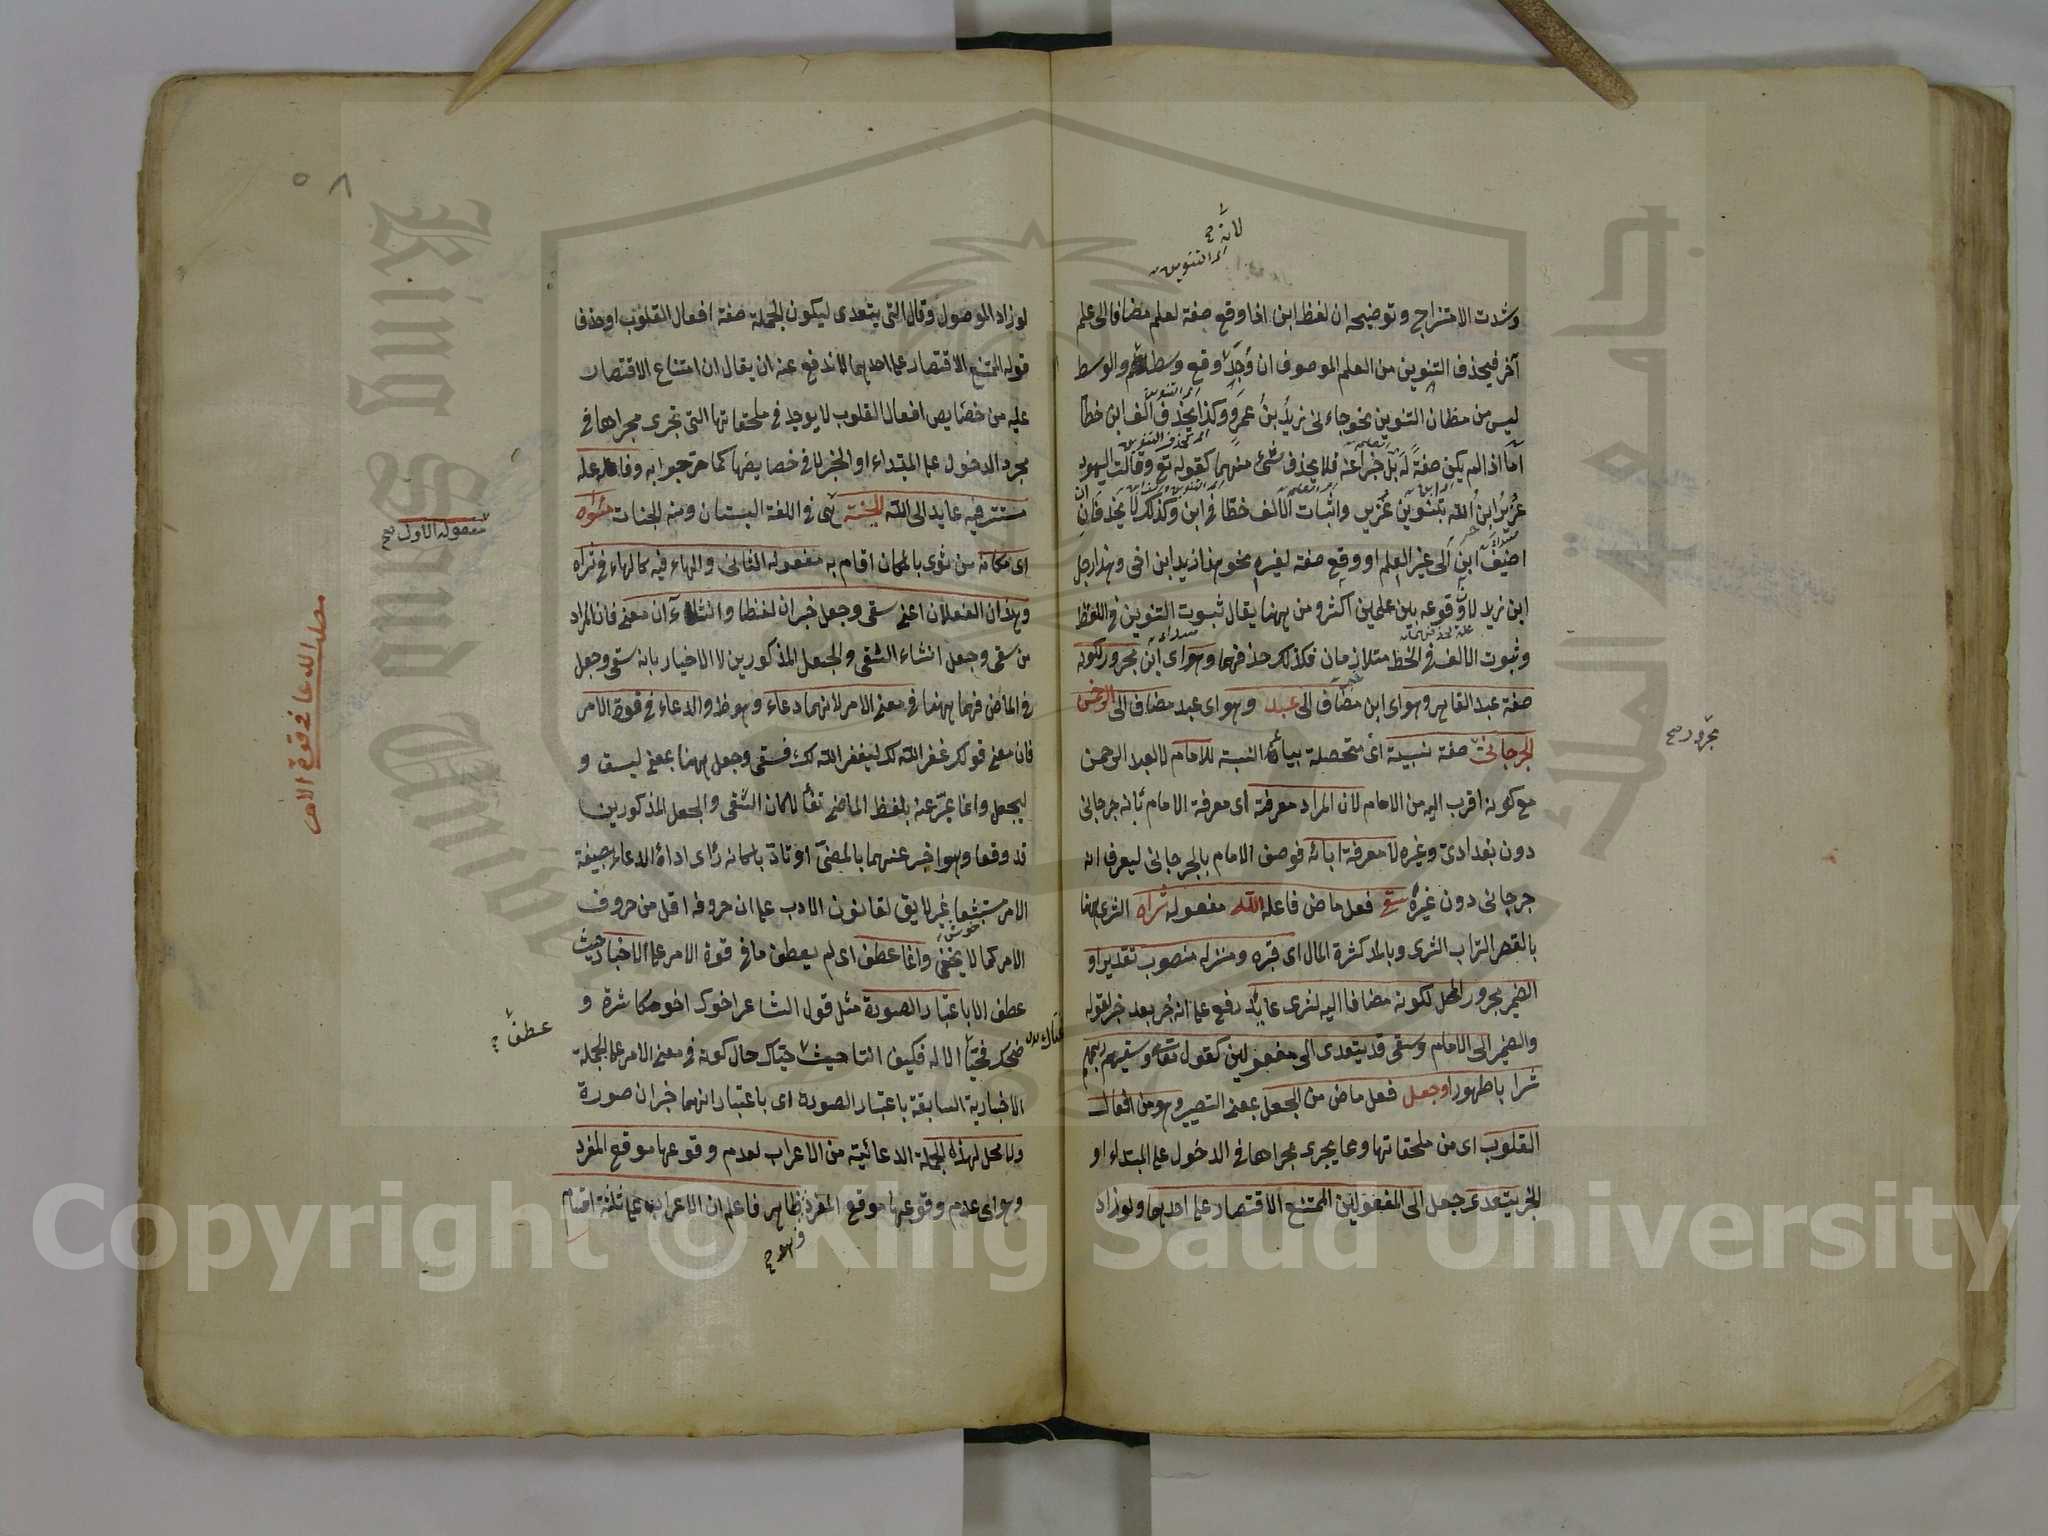 لانه ح
اى التنوين
وشدت الامتزاج وتوضيحه ان لفظ ابن اذا وقع صفة لعلم مضافا الى علم
آخر فيحذف التنوين من العلم الموصوف ان وجد وقع وسط والوسط
ليس من مظان التنوين نحو جاءنى زيد بن عمرو وكذا يحذف الف ابن خطا
اما اذا لم يكن صفة له بل خبرا عنه فلا يحذف شئ منهما كقوله تع وقالت اليهود
عزير ابن الله بتنوين عزير واثبات الالف خطا فى ابن وكذلك لا يحذفان ان
اضيف ابن الى غير العلم او وقع صفة لغيره نحو هذا زيد ابن اخى وهذا رجل
ابن زيد لان وقوعه بين علمين اكثر ومن ههنا يقال ثبوت التنوين فى اللفظ
وثبوت الالف فى الخط متلازمان فكذلك حذفهما وهو اى ابن مجرور لكونه
صفة عبد القاهر وهو اى ابن مضاف الى عبد وهو اى عبد مضاف الى الرحمن
الجرجانى صفة نسبية اى متحصلة بياء النسبة للامام لا لعبد الرحمن
مجرور صح
مع كونه اقرب اليه من الامام لان المراد معرفة اى معرفة الامام بانه جرجانى
دون بغدادى وغيره لا معرفة ابائه فوصف الامام بالجرجانى ليعرف انه
جرجانى دون غيره سقى فعل ماض فاعله الله مفعوله ثراه الثرى ههنا
بالقصر التراب الثرى وبالمد كثرة المال اى قبره ومنزله منصوب تقديرا و
الضمير مجرور المحل لكونه مضافا اليه لثرى عايد رفع على انه خبر بعد خبر لقوله
والضمير الى الامام وسقى قد يتعدى الى مفعولين كقوله تعالى وسقيهم ربهم
شرابا طهورا وجعل فعل ماض من الجعل بمعنى التصيير وهو من افعال
القلوب اى من ملحقاتها ومما يجرى مجراها فى الدخول على المبتداء او
الخبر يتعدى جعل الى المفعولين الممتنع الاقتصار على احدهما ولو زاد
٥٨
لو زاد الموصول وقال التى يتعدى ليكون الجملة صفة افعال القلوب او حذف
قوله الممتنع الاقتصار على احدهما لاندفع عنه ان يقال ان امتناع الاقتصار
عليه من خصايص افعال القلوب لا يوجد فى ملحقاتها التى تجرى مجراها فى
مجرد الدخول على المبتداء او الخبر لا فى خصايصها كما صرحوا به وفاعله
مستتر فيه عايد الى الله الجنة هى فى اللغة البستان ومنه الجنات مثواه
مفعوله الاول صح
اى مكانه من ثوى بالمكان اقام به مفعوله الثانى والهاء فيه كالهاء فى ثراه
وهذان الفعلان اعنى سقى وجعل خبران لفظا وانشاءان معنى فان المراد
من سقى وجعل انشاء السقى والجعل المذكورين لا الاخبار بانه سقى وجعل
فى الماضى فهما ههنا فى معنى الامر لانهما دعاء وهو ظ والدعاء فى قوة الامر
مطلب الدعا فى قوة الامر
فان معنى قولك غفر الله لك ليغفر الله لك فسقى وجعل ههنا بمعنى ليسق و
ليجعل وانما عبر عنه بلفظ الماضى تفألا كان السقى والجعل المذكورين
قد وقعا وهو اخبر عنهما بالمضى او تأدبا كانه رأى اداء الدعاء بصيغة
الامر مستبشعا غير لايق لقانون الادب على ان حروفه اقل من حروف
الامر كما لا يخفى وانما عطف اى لم يعطف ما فى قوة الامر على الاخبار حيث
عطف الا باعتبار الصورة مثل قول الشاعر اخوك اخو مكاشرة و
عطف ح
ضحك فحياك الاله فكيف انتا حيث حياك حال كونه فى معنى الامر على الجملة
الاخبارية السابقة باعتبار الصورة اى باعتبار انهما خبران صورة
ولا محل لهذه الجملة الدعائية من الاعراب لعدم وقوعها موقع المفرد
وهو اى عدم وقوعها موقع المفرد ظاهر فاعلم ان الاعراب على ثلثة اقسام
وهو ح
Copyright © King Saud University
King Saud University
جامعة الملك